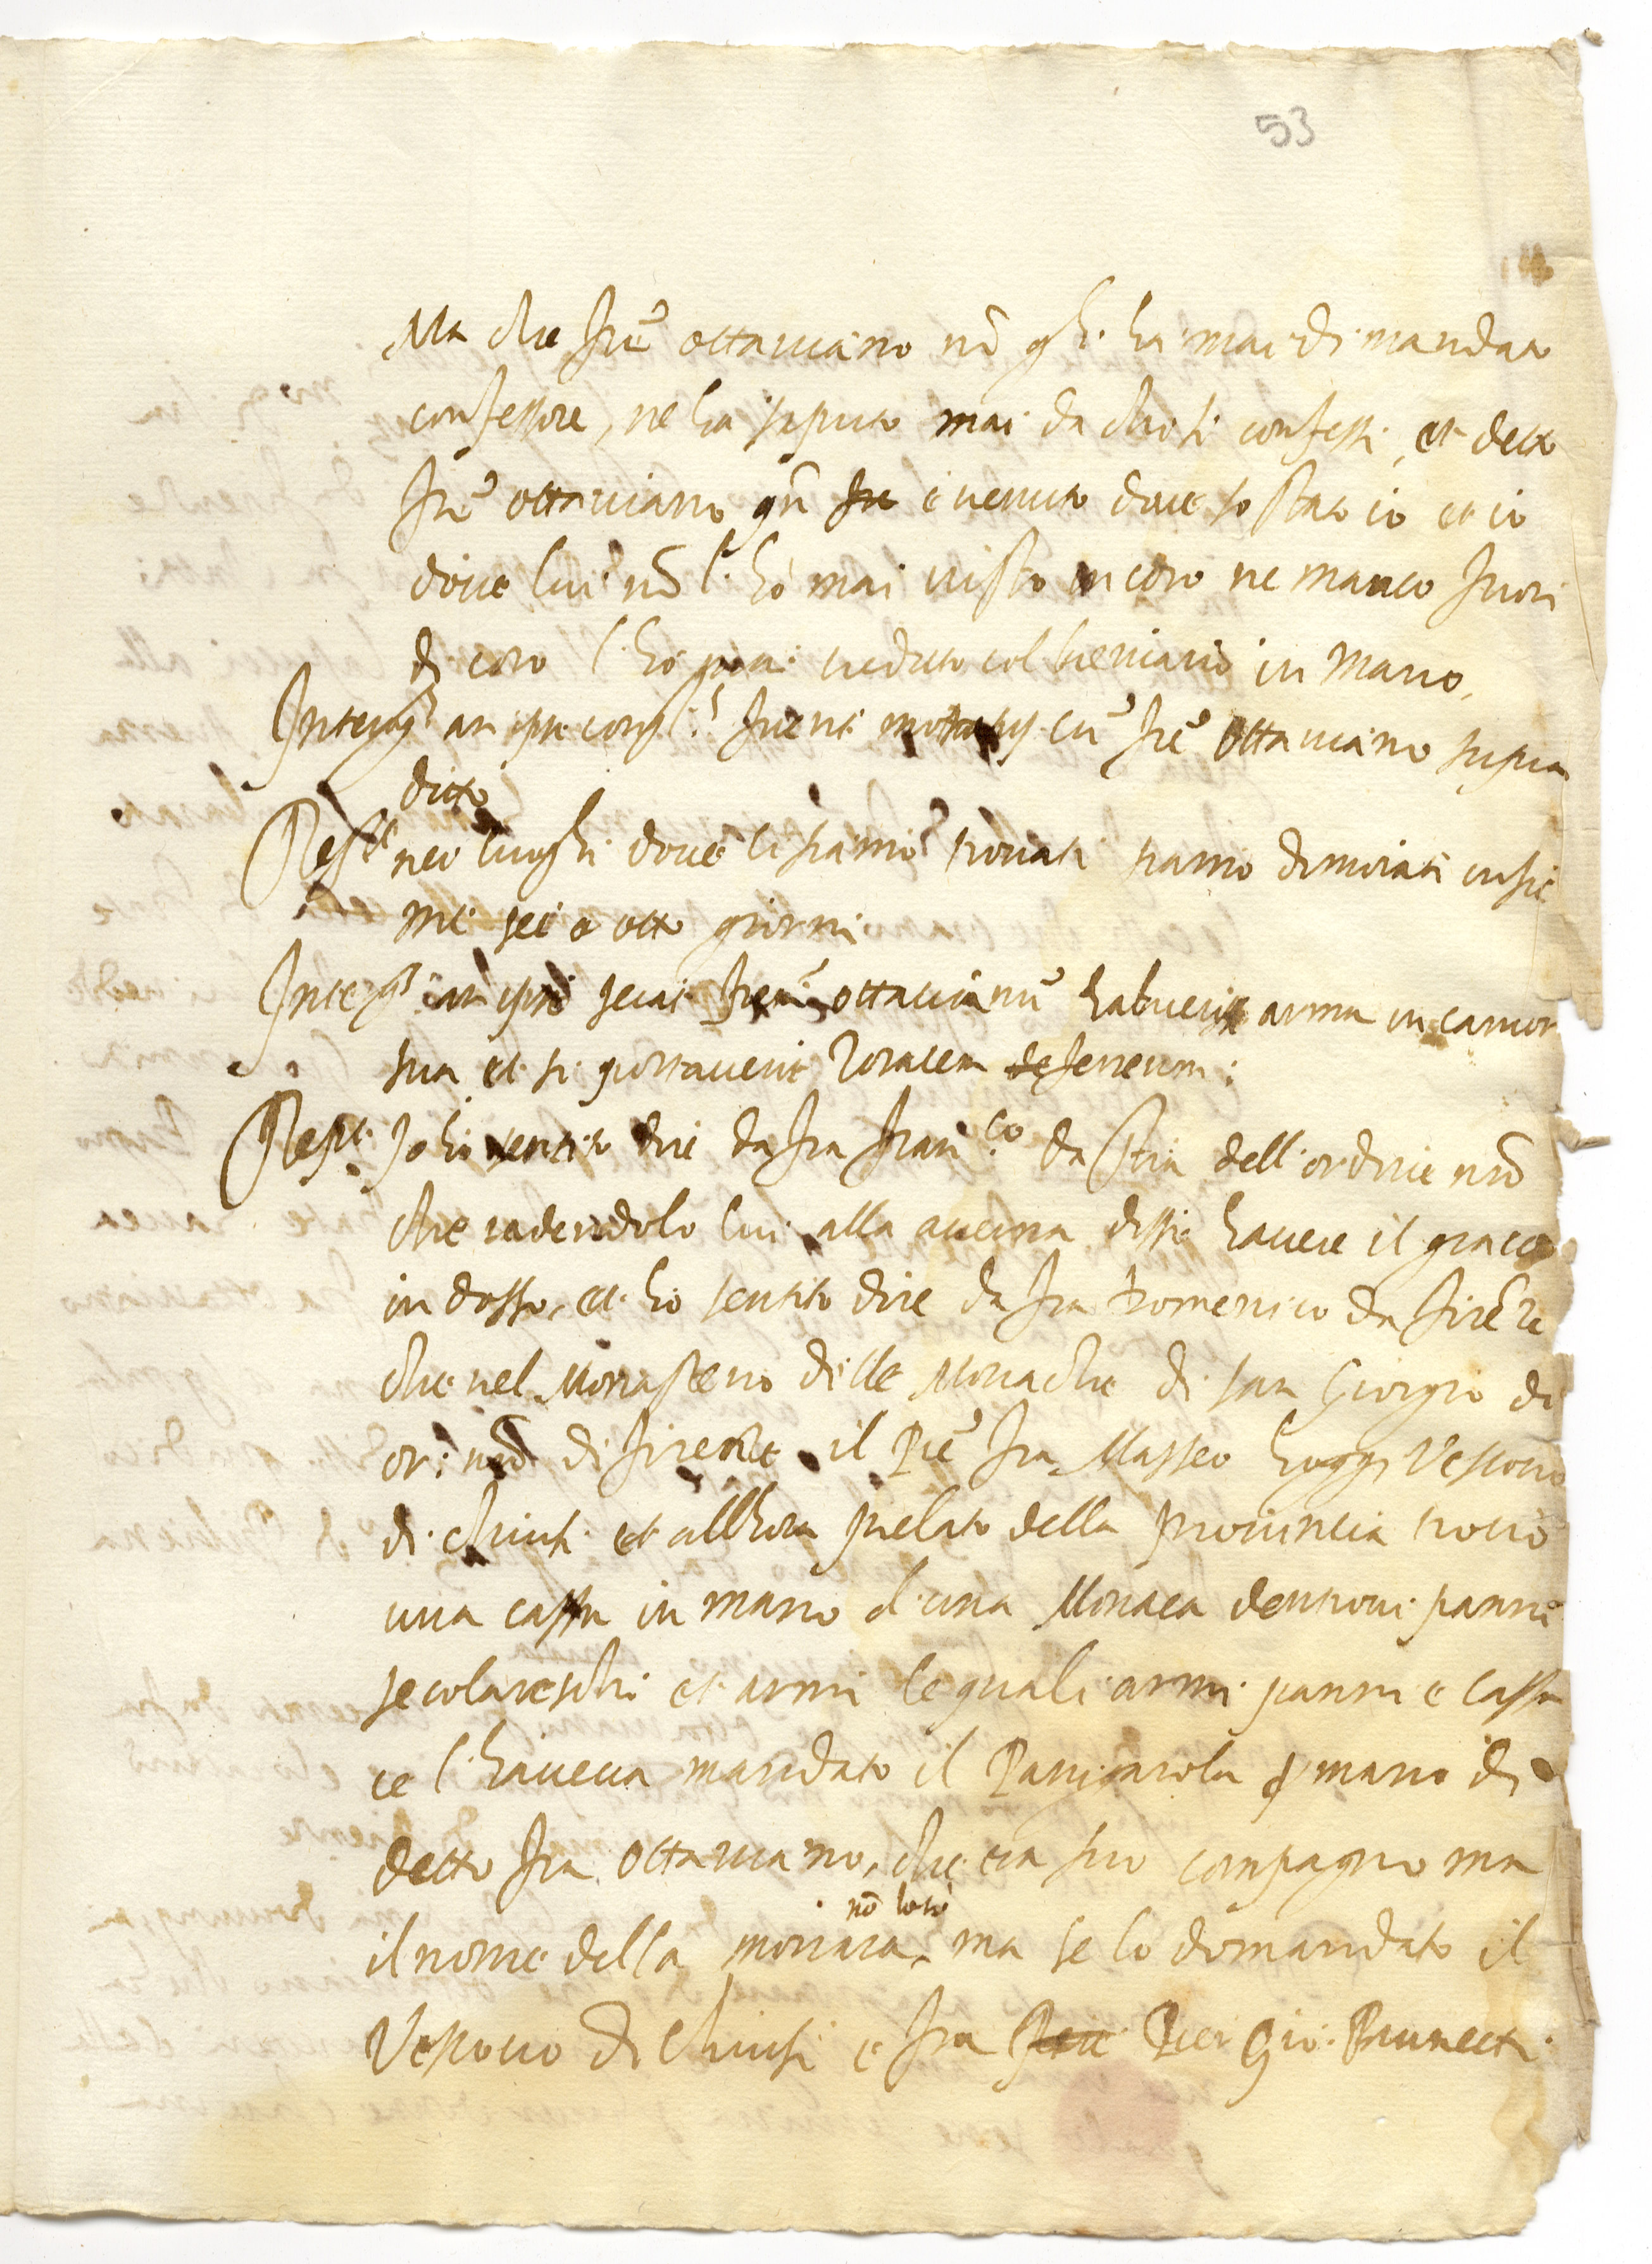 53
Ma che fre ottaviano nō gli ha mai dimandato
confessore, ne ha saputo mai da chi si confessi, et detto
fre ottaviano è venuto dove so stato io et io
dove lui nō l'ho mai visto in coro ne manco fuori
di coro l'ho mai veduto col breviario in mano,
Interog. an ipse fuerit cū fre Ottaviano supra
dicto
Rest. nei luoghi dove ci siamo trovati siamo dimorati insie
me sei o otto giorni
Interog. an ipse sciat ottavianū habuerit arma in camera
sua et si portaverit toracem ferreum:
Resp. Io ho sentito dire da fra Fran.co da Stia dell'ordine nrō
che radendolo lui alla averna disse havere il giacco
in dosso, et ho sentito dire da fra Domenico da firēze
che nel Monasterio delle Monache di san Giorgio di
or: nrō di firenze il Pre fra Masseo Vescovo
di chiusi et allhora prelato della provincia trovò
una cassa in mano d'una Monaca dentrovi panni
secolareschi et armi le quali armi panni e cassa
ce l'haveva mandato il Panigarola p mano di
detto fra Ottaviano, che era suo compagno ma
nō lo so
il nome della monaca, ma se lo domandato il
Vescovo di Chiusi e fra Pier Giō. Brunecti.